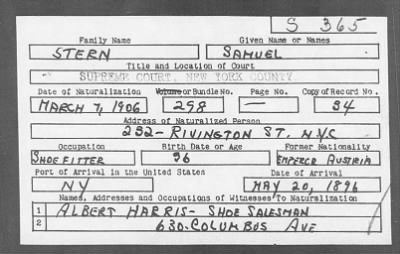 S 365
Family Name Given Name or Names
STERN SAMUEL
Title and Location of Court
SUPREME COURT, NEW YORK COUNTY.
Date of Naturalization Volume or Bundle No. Page No. Copy of Record No.
MARCH 7, 1906 298 — 34
Address of Naturalized Person
232- RIVINGTON ST. N.Y.C
Occupation Birth Date or Age Former Nationality
SHOE FITTER 36 EMPEROR AUSTRIA
Port of Arrival in the United States Date of Arrival
NY MAY 20, 1896
Names, Addresses and Occupations of Witnesses To Naturalization
1 ALBERT HARRIS- SHOE SALESMAN
2 630-COLUMBUS AVE